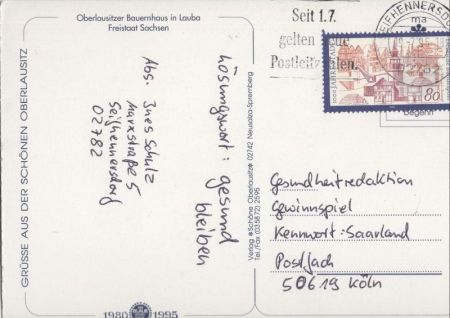 Oberlausitzer Bauernhaus in Lauba
Freistaat Sachsen
GRÜSSE AUS DER SCHÖNEN OBERLAUSITZ
Abs. Ines Schulz
Marxstraße 5
Seifhennersdorf
02782
Lösungswort: gesund
bleiben
Verlag "Schöne Oberlausitz" 02742 Neusalza-Spremberg
Tel./Fax (035872) 2595
Seit 1.7.
gelten
Postleitzahlen.
SEIFHENNERSDORF
ma
80
Gesundheitredaktion
Gewinnspiel
Kennwort: Saarland
Postfach
50619 Köln
1980 1995